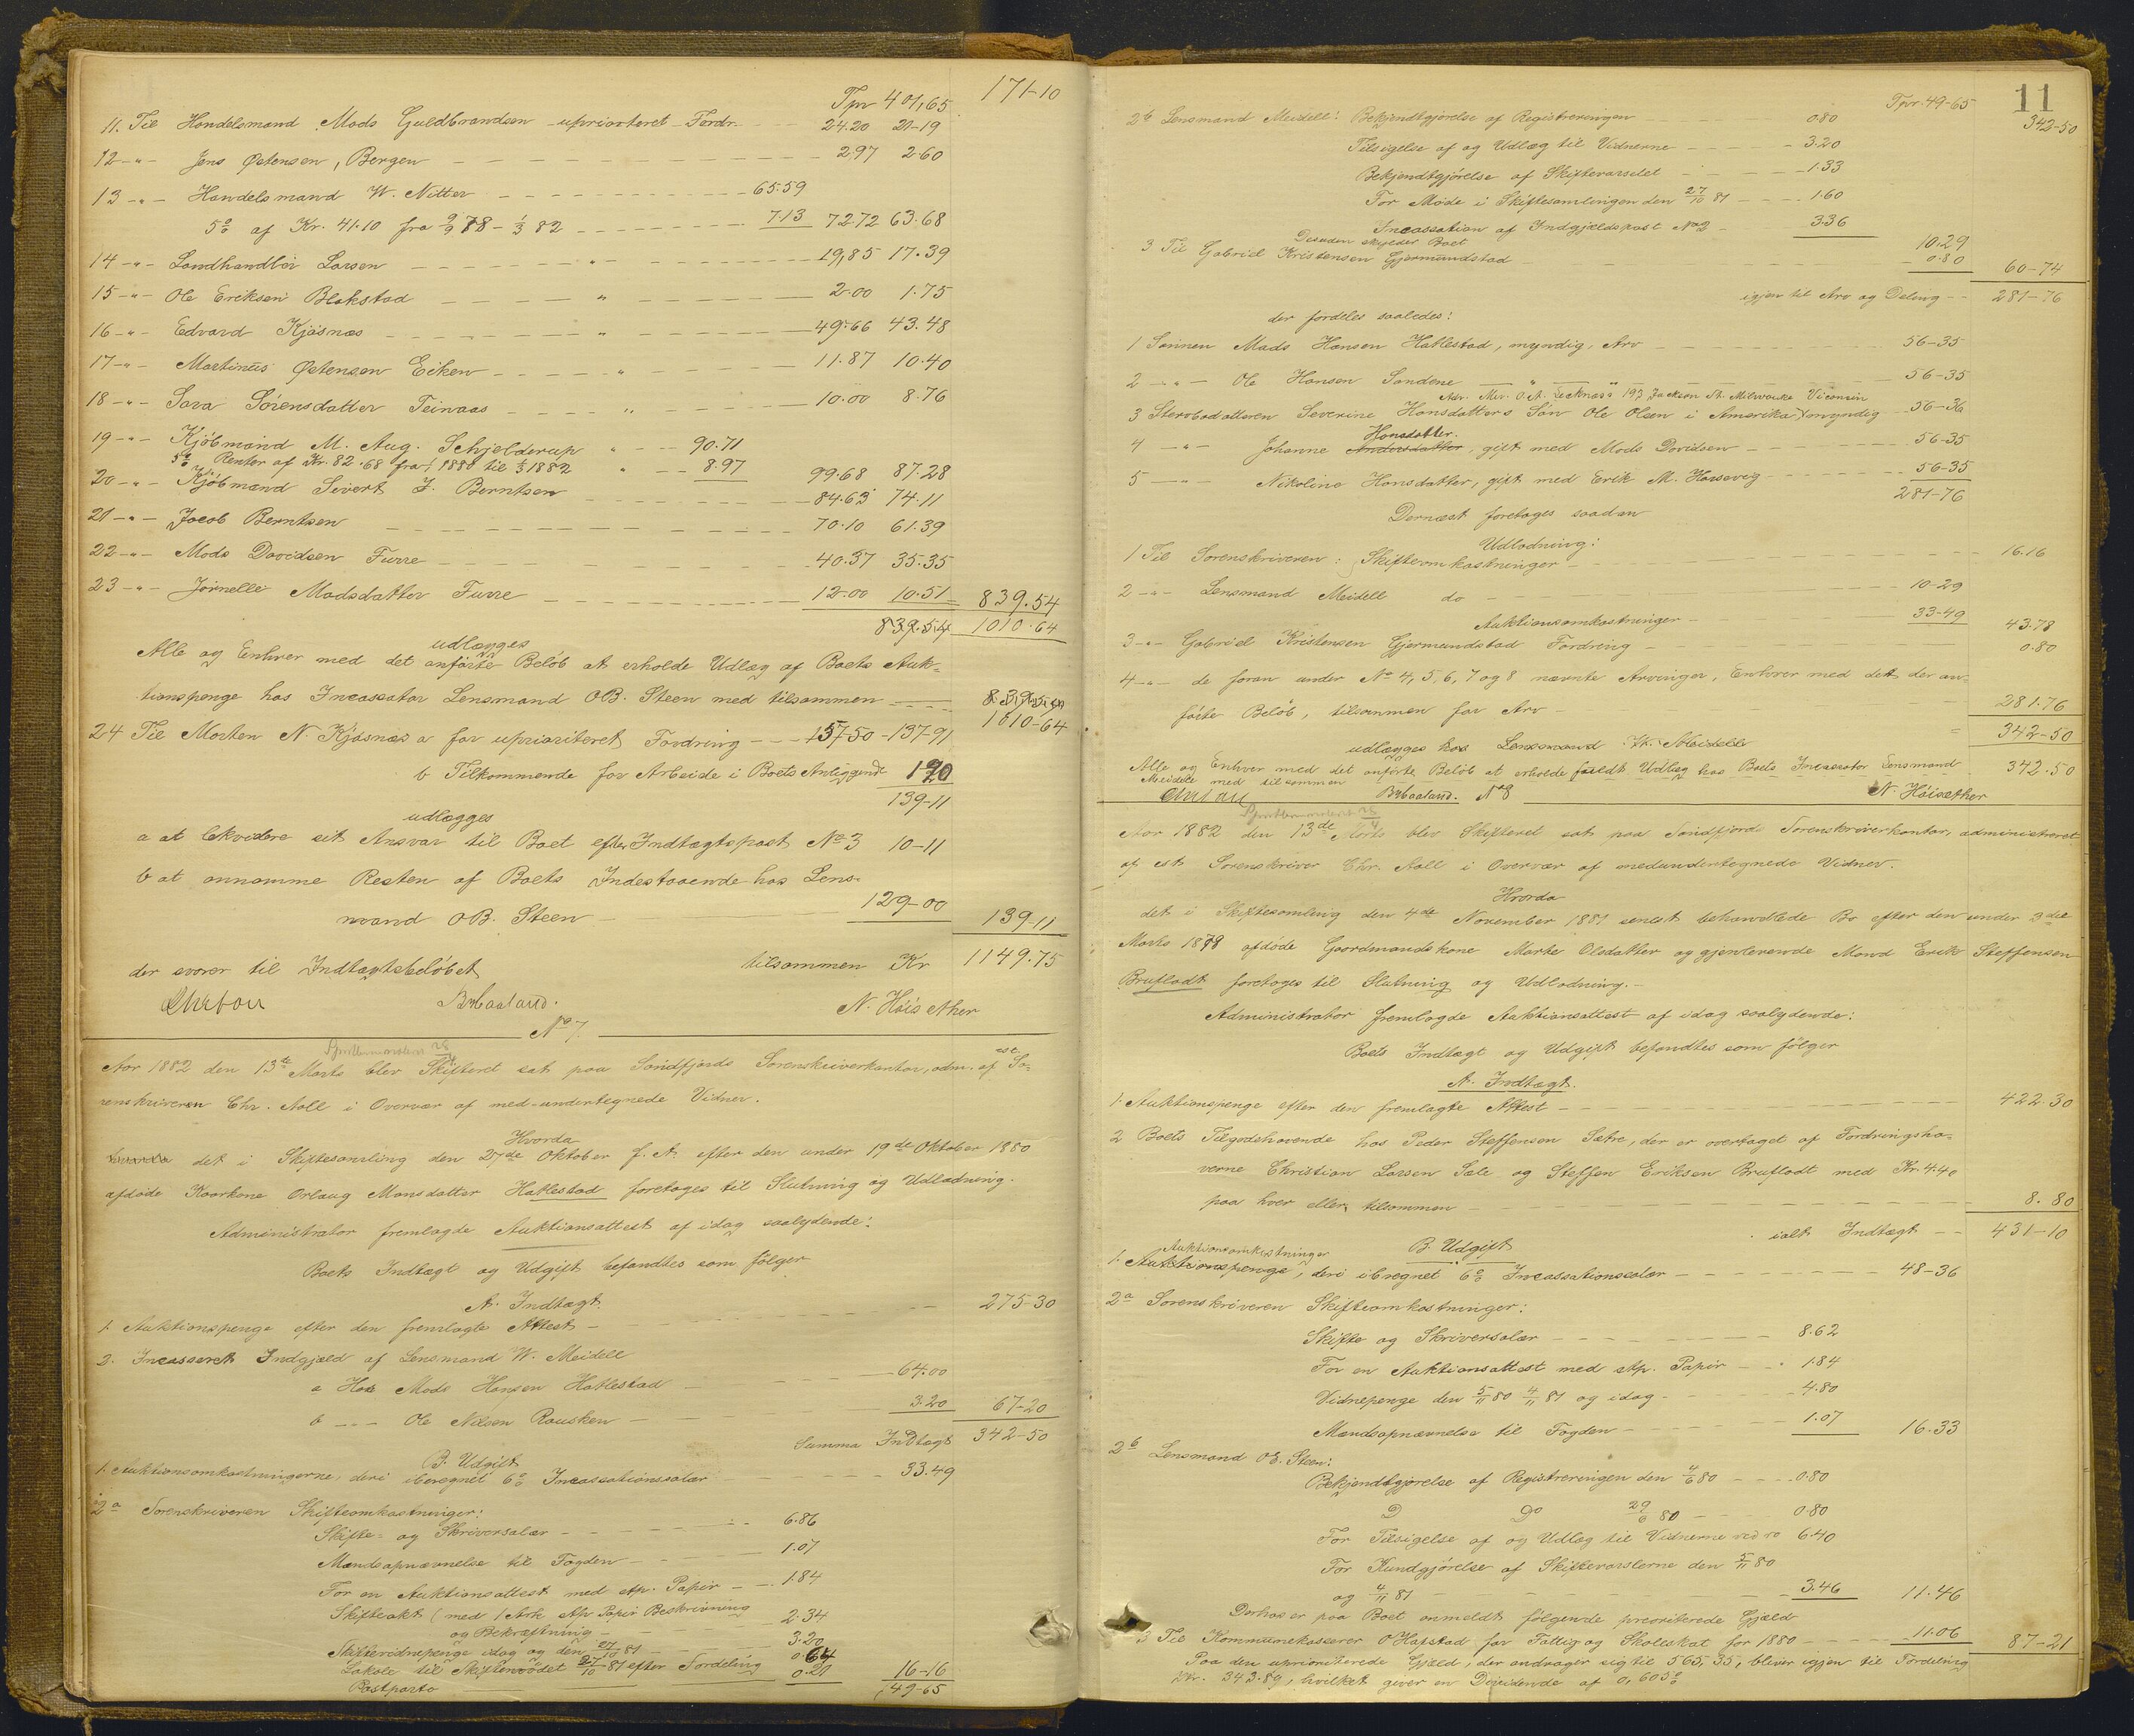 Tpr 401,65 171-10
11. Til Handelsmand Mads Guldbrandsen uprioriteret Fordr. 24.20 21-19
12 -"- Jens Østensen, Bergen 2.97 2.60
13 -"- Handelsmand W. Nitter 65.59
5% af Kr. 41.10 fra 9/9 78 - 1/3 82 7.13 72.72 63.68
14 -"- Landhandler Larsen " 19,85 17.39
15 -"- Ole Eriksen Blekstad " 2.00 1.75
16 -"- Edvard Kjøsnæs " 49.66 43.48
17 -"- Martinus Østensen Eiken " 11.87 10.40
18 -"- Sara Sørensdatter Teinaas " 10.00 8.76
19 -"- Kjøbmand M. Aug. Schjelderup " 90.71
5% Renter af Kr. 82.68 fra 1880 til 1882 " 8.97 99.68 87.28
20 -"- Kjøbmand Sivert J. Berntsen 84.63 74.11
21 -"- Jacob Berntsen 70.10 61.39
22 -"- Mads Davidsen Furre 40.37 35.35
23 -"- Jørnelle Madsdatter Furre 12.00 10.51 839.54
839.54 1010.64
udlægges
Alle og Enhver med det anførte Beløb at erholde Udlæg af Boets Auk-
tionspenge hos Incassator Lensmand OB. Steen med tilsammen 839.54
1010-64
24 Til Morten N. Kjøsnæs a for uprioriteret Fordring 157-50 - 137-91
b Tilkommende for Arbeide i Boets Anliggende 1 20
139-11
udlægges
a at likvidere sit Ansvar til Boet efter Indtægtspost No 3 10-11
b at annamme Resten af Boets Indestaaende hos Lens-
mand OB. Steen 129-00 139-11
der svarer til Indtægtsbeløbet tilsammen Kr 1149.75
Chr Aall B Haaland. N. Høisæther
No 7
Aar 1882 den 13de Marts blev Skifteret sat paa Søndfjords Sorenskriverkontor, adm. af cst. So-
renskriveren Chr. Aall i Overvær af med-undertegnede Vidner.
Hvorda
det i Skiftesamling den 27de Oktober f. A. efter den under 19de Oktober 1880
afdøde Kaarkone Orlaug Monsdatter Hatlestad foretoges til Slutning og Udlodning.
Administrator fremlagde Auktionsattest af idag saalydende:
Boets Indtægt og Udgift befandtes som følger
A. Indtægt.
1. Auktionspenge efter den fremlagte Attest 275-30
2. Incasseret Indgjæld af Lensmand W. Meidell
a Hos Mads Hansen Hatlestad 64.00
b -"- Ole Nilsen Rausken 3.20 67-20
Summa Indtægt 342-50
B. Udgift
1. Auktionsomkostningerne, deri iberegnet 6% Incassationssalær 33.49
2a Sorenskriveren Skifteomkostninger:
Skifte- og Skriversalær 6.86
Mandsopnævnelse til Fogden 1.07
For en Auktionsattest med stp. Papir 1.84
Skifteakt (med 1 Ark stp Papir Beskrivning
og Bekræftning 2.34
Skiftevidnepenge idag og den 27/10 81 3.20
Lokale til Skiftemødet 27/10 81 efter Fordeling 0 64
Postporto 0.20 16-16
49-65
11
Tpr. 49-65 342-50
2b Lensmand Meidell: Bekjendtgjørelse af Registreringen 0.80
Tilsigelse af og Udlæg til Vidnerne 3.20
Bekjendtgjørelse af Skiftevarselet 1.33
For Møde i Skiftesamlingen den 27/10 81 1.60
Incassation af Indgjældspost No 2 3.36 10.29
Desuden skylder Boet
3 Til Gabriel Kristensen Gjermundstad 0.80 60-74
igjen til Arv og Deling 281-76
der fordeles saaledes:
1 Sønnen Mads Hansen Hatlestad, myndig, Arv 56-35
2 -"- Ole Hansen Sandene " " 56-35
Adr. Mr. O.A. 193 Jackson St. Milwauke Viconsin
3 Stervbodatteren Severine Hansdatters Søn Ole Olsen i Amerika, myndig 56-36
Hansdatter.
4 -"- Johanne Andersdatter, gift med Mads Davidsen 56-35
5 -"- Nikoline Hansdatter, gift med Erik M. Harsevig 56-35
281-76
Dernæst foretoges saadan
Udlodning:
1 Til Sorenskriveren: Skifteomkostninger 16.16
2 -"- Lensmand Meidell do 10-29
Auktionsomkostninger 33-49 43.78
3 -"- Gabriel Kristensen Gjermundstad Fordring 0.80
4 -"- de foran under No 4, 5, 6, 7 og 8 nævnte Arvinger, Enhver med det der an-
førte Beløb, tilsammen for Arv 281.76
342-50
udlægges hos Lensmand W. Meidell
Alle og Enhver med det anførte Beløb at erholde fuldt Udlæg hos Boets Incassator Lensmand
Meidell med tilsammen 342.50
Chr Aall B Haaland. No 8 N. Høisæther
Aar 1882 den 13de Marts blev Skifteret sat paa Søndfjords Sorenskriverkontor, administreret
af cst. Sorenskriver Chr. Aall i Overvær af medundertegnede Vidner.
Hvorda
det i Skiftesamling den 4de November 1881 senest behandlede Bo efter den under 3die
Marts 1878 afdøde Gaardmandskone Marte Olsdatter og gjenlevende Mand Erik Steffensen
Bruflodt foretoges til Slutning og Udlodning.
Administrator fremlagde Auktionsattest af idag saalydende:
Boets Indtægt og Udgift befandtes som følger
A. Indtægt.
1. Auktionspenge efter den fremlagte Attest 422.30
2 Boets Tilgodehavende hos Peder Steffensen Sætre, der er overtaget af Fordringsha-
verne Christian Larsen Sæle og Steffen Eriksen Bruflodt med Kr. 4.40
paa hver eller tilsammen 8.80
ialt Indtægt 431-10
B. Udgift
Auktionsomkostninger
1. Auktionspenge, deri iberegnet 6% Incassationssalær 48-36
2a Sorenskriveren Skifteomkostninger:
Skifte og Skriversalær 8.62
For en Auktionsattest med stp. Papir 1.84
Vidnepenge den 5/11 80 4/11 81 og idag 4.80
Mandsopnævnelse til Fogden 1.07 16.33
2b Lensmand OB. Steen:
Bekjendtgjørelse af Registreringen den 4/6 80 0.80
D Do 29/6 80 0.80
For Tilsigelse af og Udlæg til Vidnerne 6.40
For Kundgjørelse af Skiftevarslerne den 5/11 80
og 4/11 81 3.46 11.46
Derhos er paa Boet anmeldt følgende prioriterede Gjæld
3 Til Kommunekasserer O Hafstad for Fattig og Skoleskat for 1880 11.06 87-21
Paa den uprioriterede Gjæld, der andrager sig til 565,35, bliver igjen til Fordeling
Kr. 343.89, hvilket giver en Dividende af 0,605%